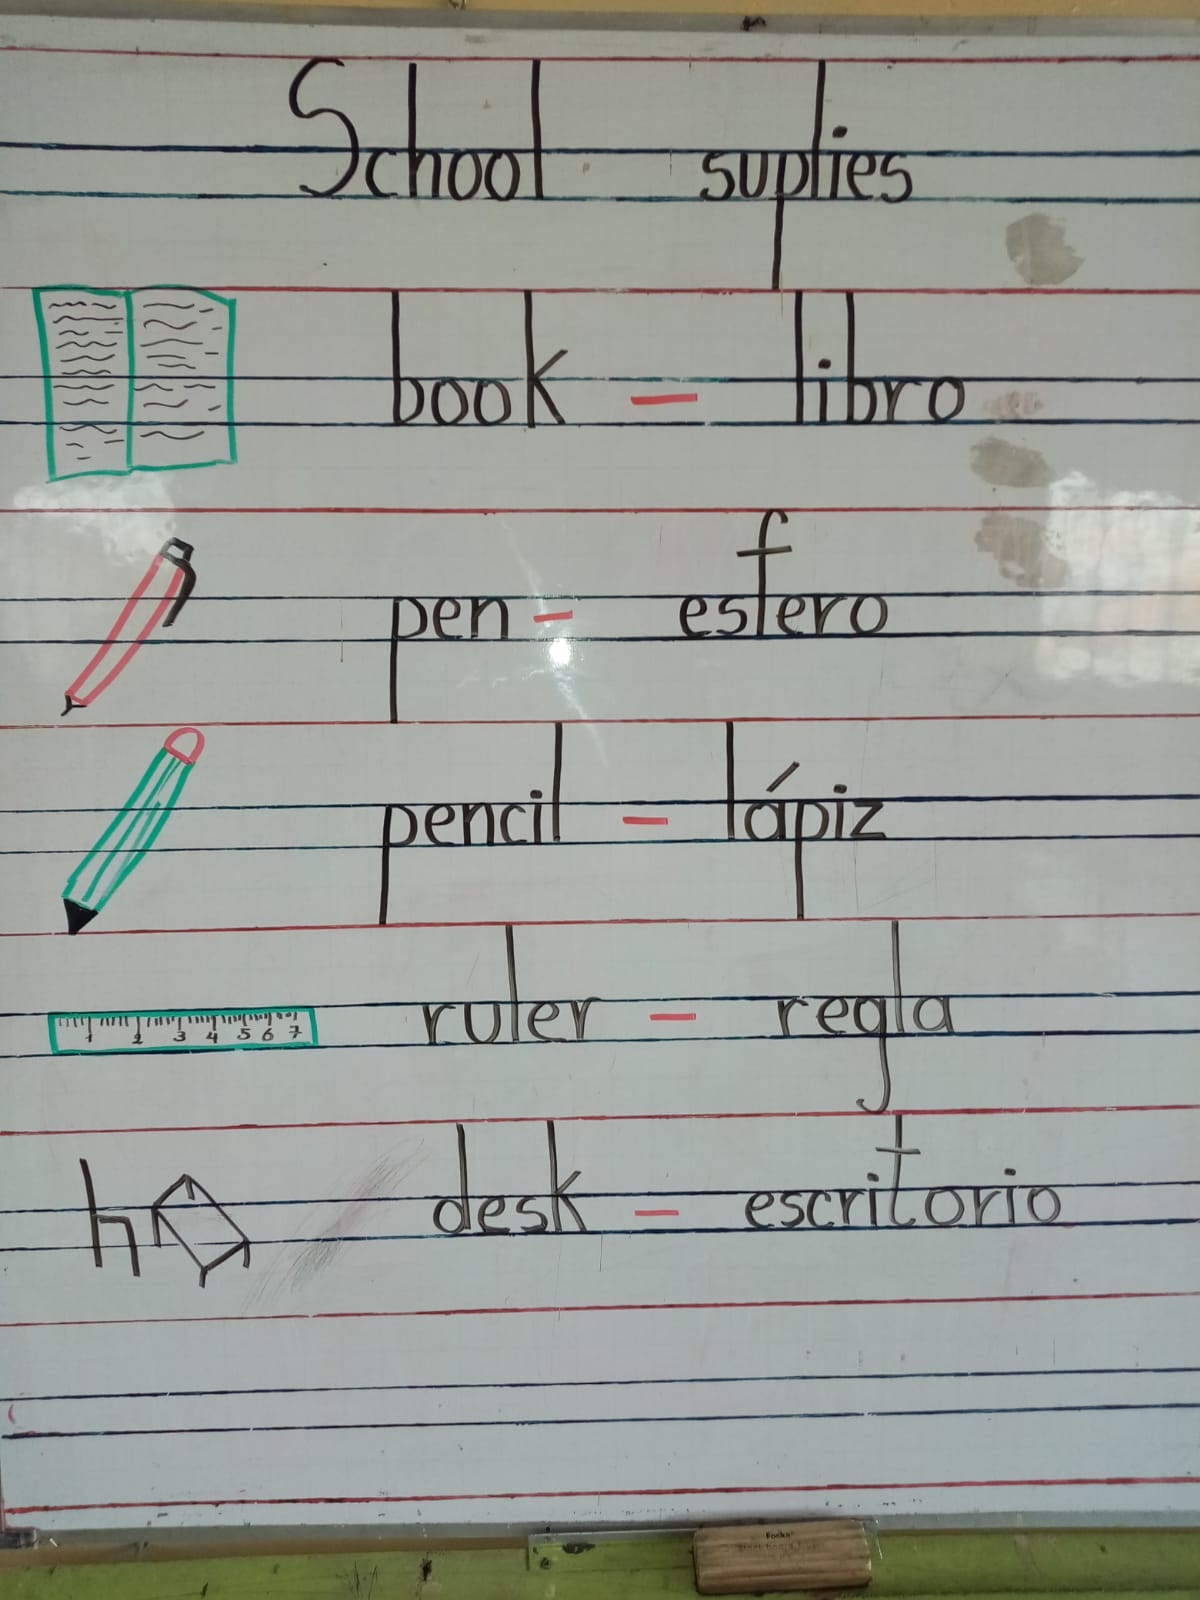 School suplies
book - libro
pen - esfero
pencil - lápiz
ruler - regla
1 2 3 4 5 6 7
desk - escritorio